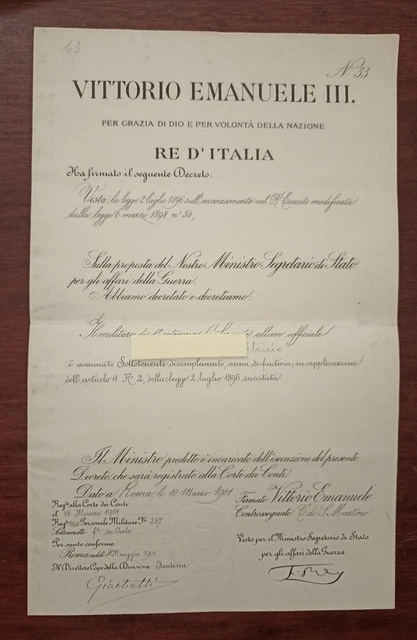 63
N° 33
VITTORIO EMANUELE III.
PER GRAZIA DI DIO E PER VOLONTÀ DELLA NAZIONE
RE D'ITALIA
Ha firmato il seguente Decreto:
Vista la legge 2 luglio 1896 sull'avanzamento nel R° Esercito modificata
dalla legge 6 marzo 1898 n° 50,
Sulla proposta del Nostro Ministro Segretario di Stato
per gli affari della Guerra.
Abbiamo decretato e decretiamo:
Il militare di 1a categoria allievo ufficiale
è nominato Sottotenente di complemento, arma di fanteria, in applicazione
dell'articolo 11 N° 2, della legge 2 luglio 1896, succitata
Il Ministro predetto è incaricato dell'esecuzione del presente
Decreto, che sarà registrato alla Corte dei Conti.
Dato a Roma li 10 Marzo 1901
Firmato Vittorio Emanuele
Controssegnato C. di S. Martino
Regto alla Corte dei Conti
il 18 Marzo 1901
Regto Personale Militare F° 287
Sottoscritto fto de Carlo
Per sunto conforme
Roma addì Maggio 1901
Il Direttore Capo della Divisione Fanteria
Visto per il Ministro Segretario di Stato
per gli affari della Guerra